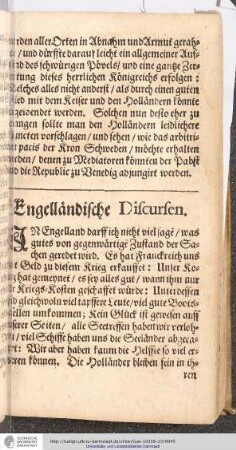 rden aller Orten in Abnahm und Armut gerah-
/ und dürffte darauf leicht ein allgemeiner Auf-
nd des schwürigen Pövels / und eine gantze Zer-
tung dieses herrlichen Königreichs erfolgen:
elches alles nicht anderst / als durch einen guten
ied mit dem Keiser und den Holländern könnte
gezeidendet werden. Solchen nun desto eher zu
angen sollte man den Holländern leidlichere
meten vorschlagen / und sehen / wie das arbitri-
pacis der Kron Schweden / möchte erhalten
erden / denen zu Mediatoren könnten der Pabst
d die Republic zu Venedig adjungirt werden.
Engelländische Discursen.
IN Engelland darff ich nicht viel sagē / was
gutes von gegenwärtigē Zustand der Sa-
chen geredet wird. Es hat Franckreich uns
Geld zu diesem Krieg erkaufft: Unser Kö-
hat gemeynet / es sey alles gut / wann ihm nur
Kriegs-Kosten geschafft würde: Unterdessen
d gleichwoln viel tapffere Leute / viel gute Boots-
ellen umkommen; Kein Glück ist gewesen auff
serer Seiten / alle Seetreffen haben wir verloh-
/ viel Schiffe haben uns die Seeländer abgena-
: Wir aber haben kaum die Helffte so viel er-
ren können. Die Holländer bleiben fein in ih-
ren